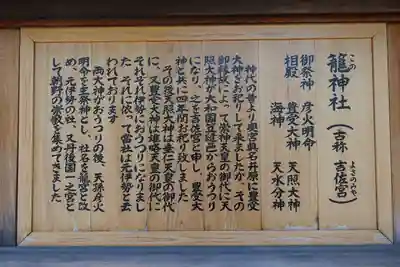 籠神社（古称 吉佐宮）
この
よさのみや
御祭神 彦火明命
相殿 豊受大神 天照大神
海神 天水分神
神代の昔より奥宮眞名井原に豊受
大神をお祀りして来ましたが、その
御縁故によって崇神天皇の御代に天
照大神が大和国笠縫邑からおうつり
になり、之を吉佐宮と申し、豊受大
神と共に四年間お祀り致しました
その後天照大神は垂仁天皇の御代
に、又豊受大神は雄略天皇の御代に
それぞれ伊勢におうつりになりまし
た。それに依って當社は元伊勢と云
われております
両大神がおうつりの後、天孫彦火
明命を主祭神とし、社名を籠宮と改
め、元伊勢の社、又丹後国一之宮と
して朝野の崇敬を集めてきました